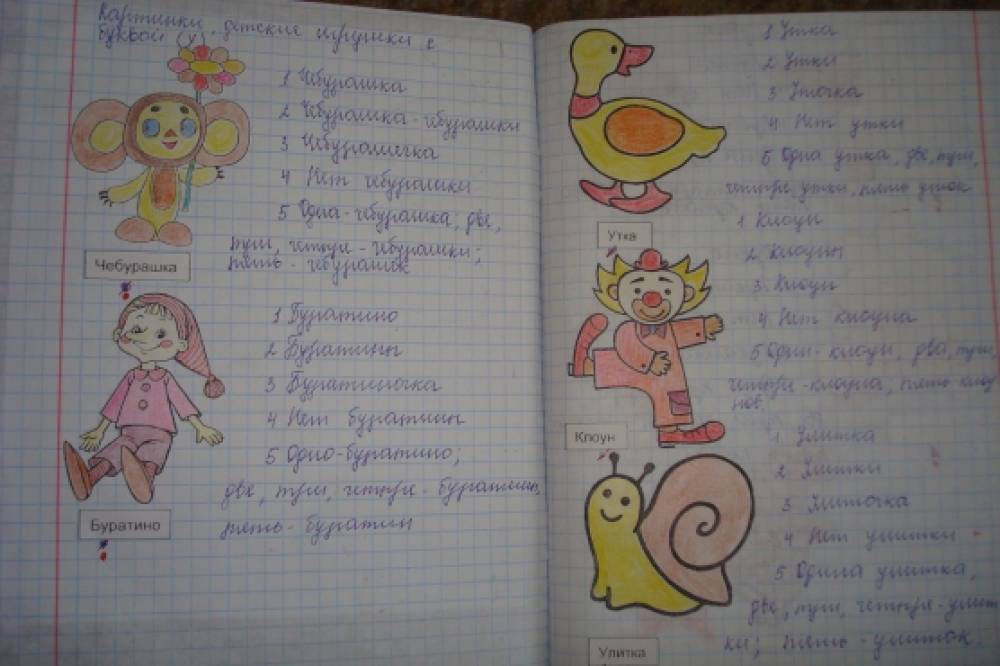 Картинки, детские игрушки с
буквой (У).
1 Чебурашка
2 Чебурашка-чебурашки
3 Чебурашечка
4 Нет чебурашки
5 Одна-чебурашка, две,
три, четыре-чебурашки;
пять-чебурашек
Чебурашка
1 Буратино
2 Буратины
3 Буратиночка
4 Нет буратин
5 Одно-буратино;
две, три, четыре-буратины,
пять-буратин
Буратино
1 Утка
2 Утки
3 Уточка
4 Нет утки
5 Одна утка, две, три,
четыре, утки, пять уток
Утка
1 Клоун
2 Клоуны
3 Клоун
4 Нет клоуна
5 Один-клоун, два, три,
четыре-клоуна, пять клоу
нов.
Клоун
1 Улитка
2 Улитки
3 Улиточка
4 Нет улитки
5 Одна улитка,
две, три, четыре-улит
ки; пять-улиток.
Улитка